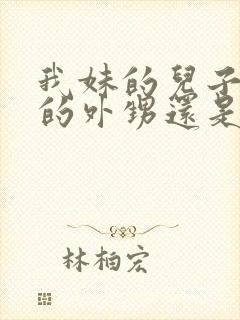 我妹的兒子
的外甥還是
林柏宏